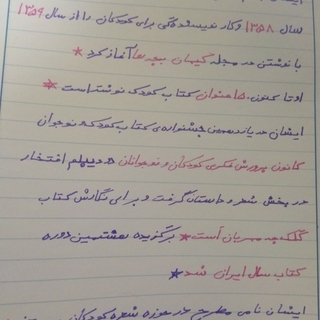 سال ۱۳۵۸ وکار نویسندگی برای کودکان را از سال ۱۳۵۹
با نوشتن در مجله کیهان بچه ها آغاز کرد *
او تا کنون، ها عنوان کتاب کودک نوشته است *
ایشان در یازدهمین جشنواره ی کتاب کودک و نوجوان
کانون پرورش فکری کودکان و نوجوانان دیپلم افتخار
در بخش شعر و داستان گرفت و برای نگارش کتاب
گلک چه مهربان است * برگزیده هشتمین دوره
کتاب سال ایرانی شد *
ایشان نامی مطرح در حوزه شعر کودکان